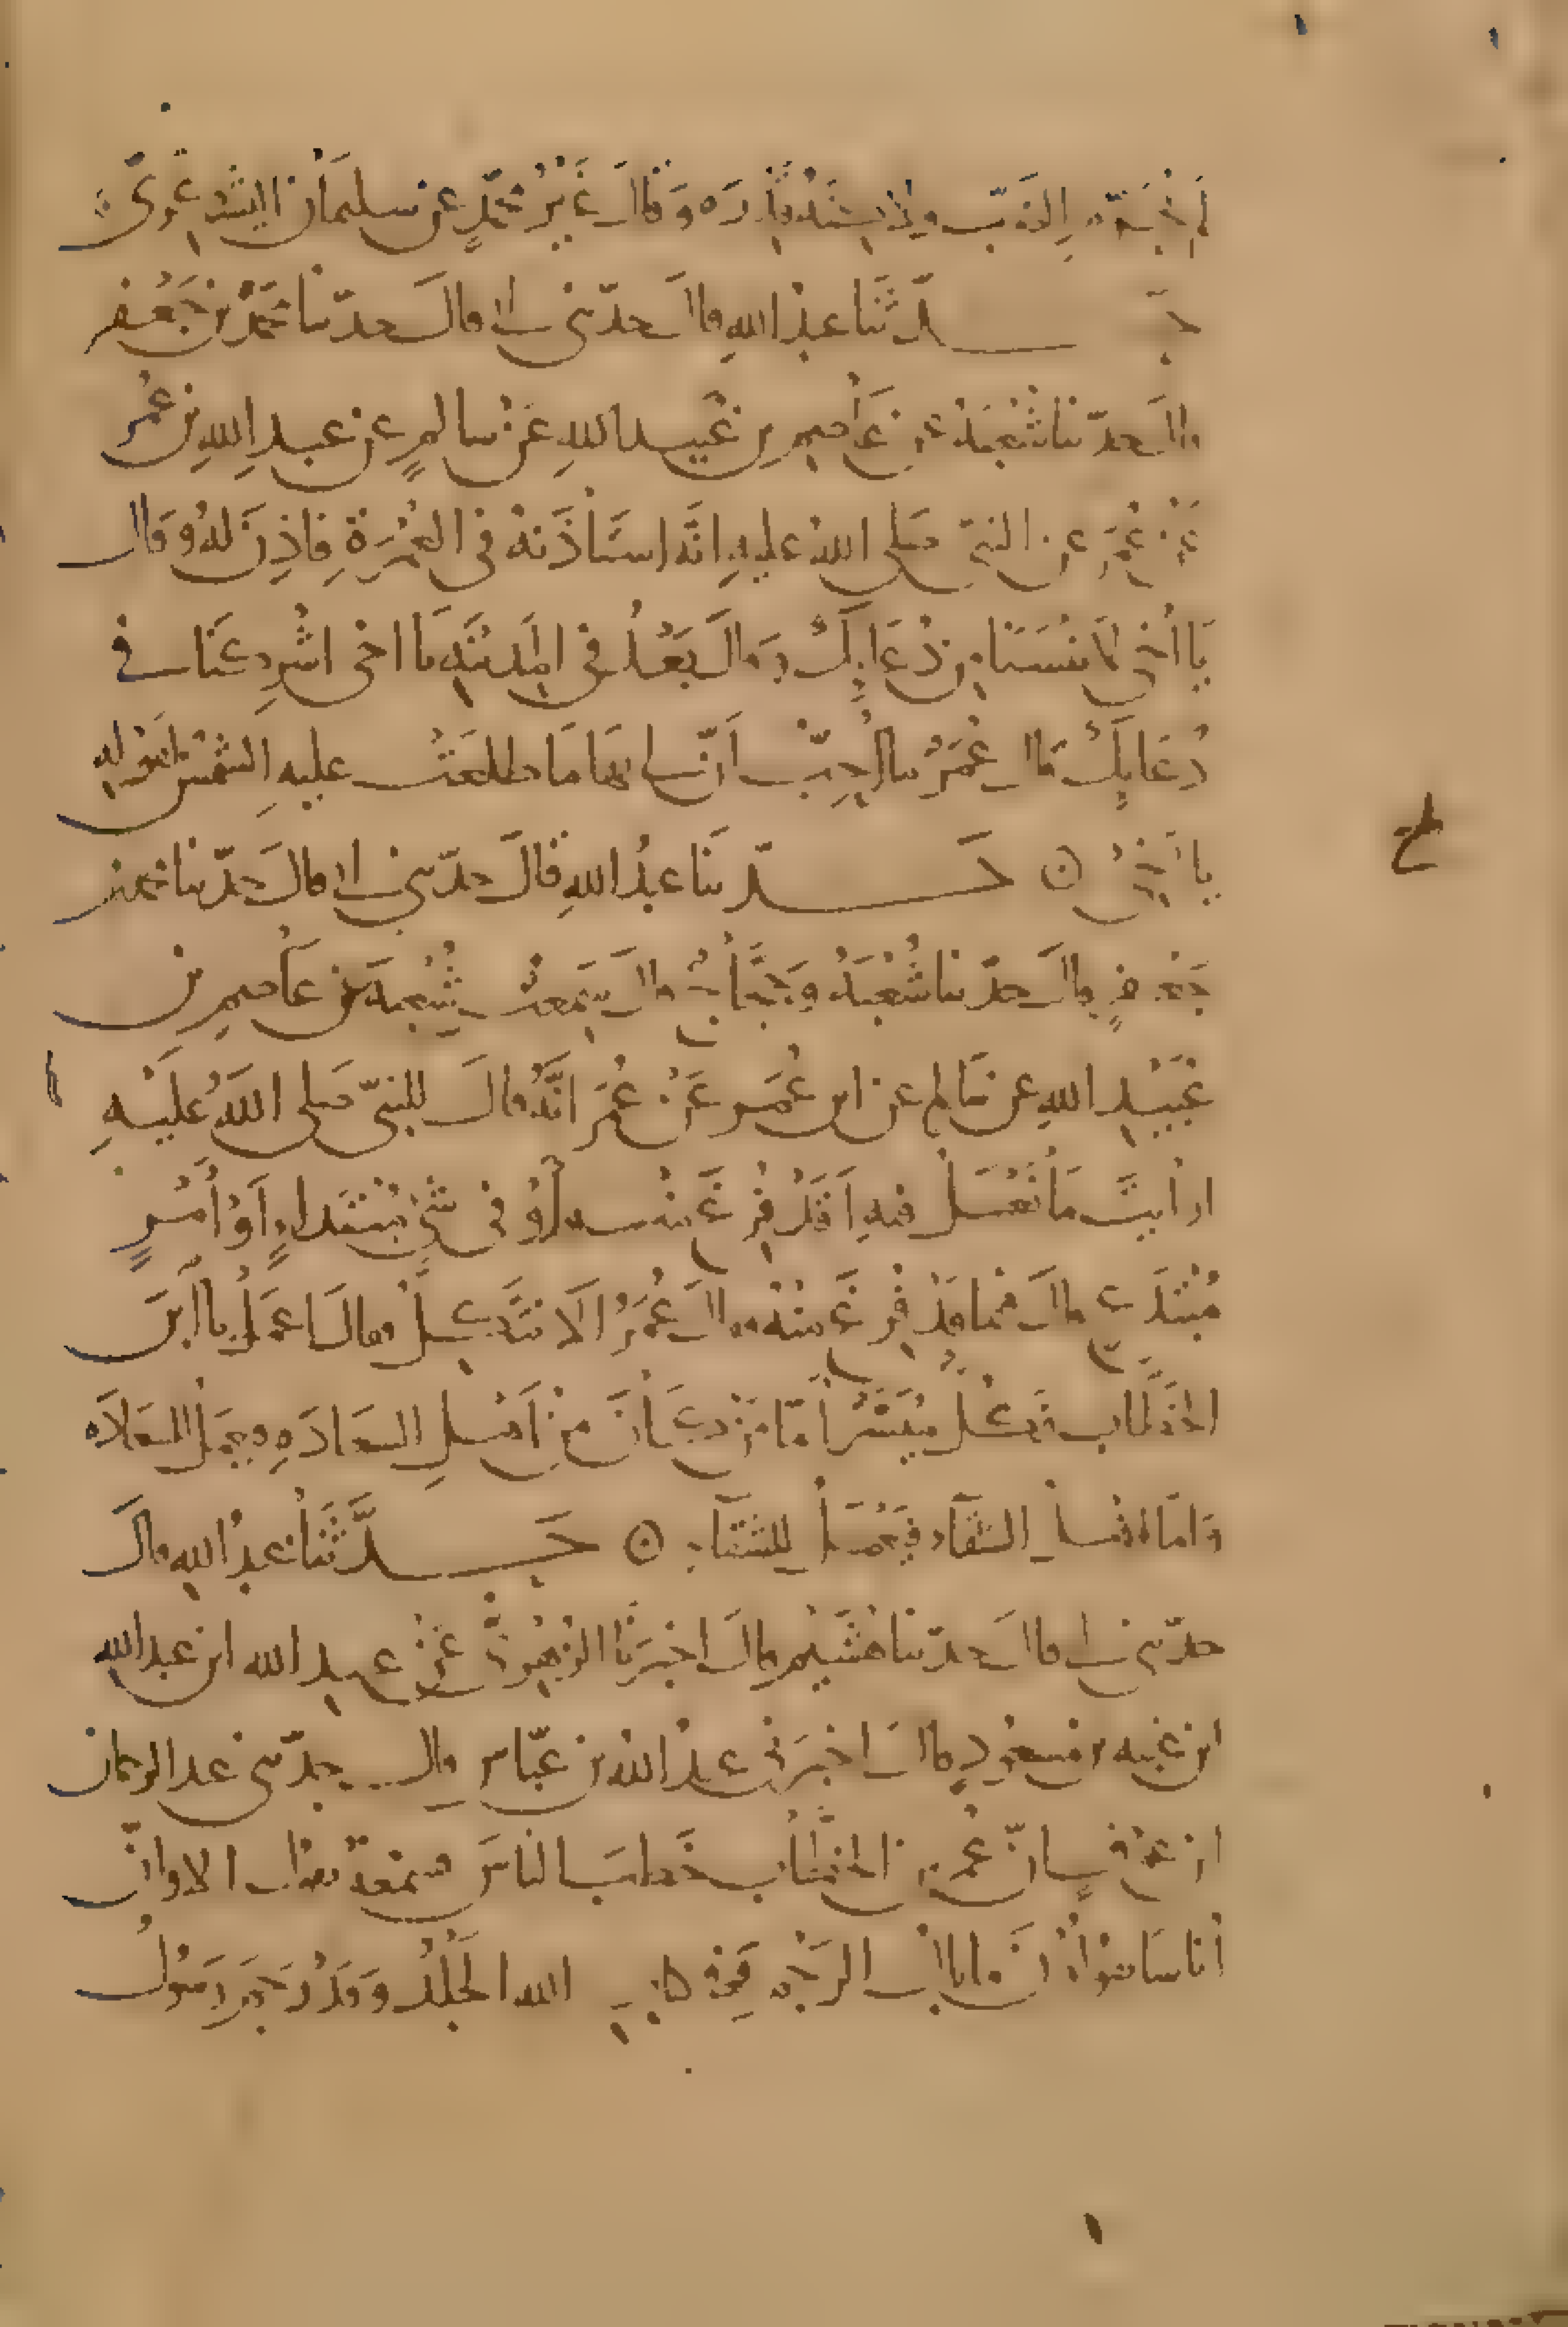 وقال غير محمد عن سليمان اليشكري
حدثنا عبد الله قال حدثني ابي قال حدثنا محمد بن جعفر
قال حدثنا شعبة عن عاصم بن عبيد الله عن سالم عن عبد الله بن عمر
عن عمر عن النبي صلى الله عليه انه استاذنه في العمرة فاذن له وقال
يا اخي لا تنسنا من دعايك وقال بعد في المدينة يا اخي اشركنا في
دعايك قال عمر ما احب ان لي بها ما طلعت عليه الشمس لقوله
يا اخي حدثنا عبد الله قال حدثني ابي قال حدثنا محمد بن
جعفر قال حدثنا شعبة وحجاج قال سمعت شعبة عن عاصم بن
عبيد الله عن سالم عن ابن عمر عن عمر انه قال للنبي صلى الله عليه
ارايت ما نعمل فيه اقد فرغ منه او في شي مبتدا او امر
مبتدع قال فيما قد فرغ منه فقال عمر الا نتكل فقال اعمل يا ابن
الخطاب فكل ميسر اما من كان من اهل السعادة فيعمل للسعادة
واما اهل الشقاء فيعمل للشقاء حدثنا عبد الله قال
حدثني ابي قال حدثنا هشيم قال اخبرنا الزهري عن عبيد الله ابن عبد الله
ابن عتبه بن مسعود قال اخبرني عبد الله بن عباس قال حدثني عبد الرحمان
ابن عوف ان عمر بن الخطاب خطب الناس فسمعه يقول الا وان
اناسا يقولون ما بال الرجم الله الجلد وقد رجم رسول